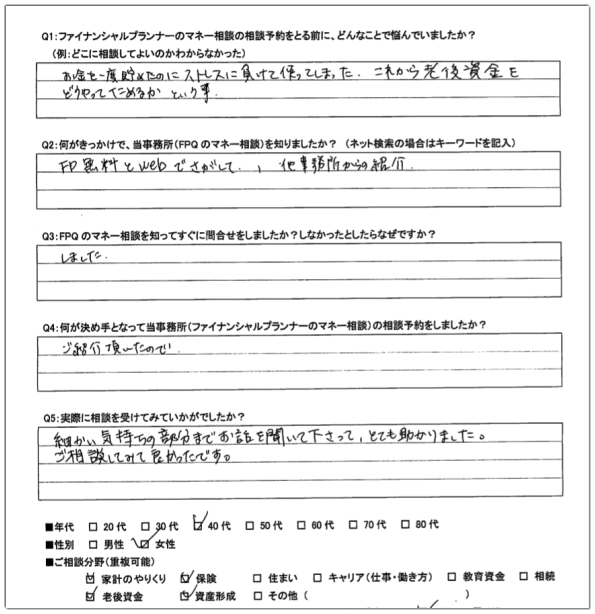 Q1：ファイナンシャルプランナーのマネー相談の相談予約をとる前に、どんなことで悩んでいましたか？
（例：どこに相談してよいのかわからなかった）
お金を一度貯めたのにストレスに負けて使ってしまった。これから老後資金を
どうやってためるかという事。
Q2：何がきっかけで、当事務所（FPQのマネー相談）を知りましたか？（ネット検索の場合はキーワードを記入）
FP 無料とwebでさがして、、他事務所からの紹介。
Q3：FPQのマネー相談を知ってすぐに問合せをしましたか？しなかったとしたらなぜですか？
しました。
Q4：何が決め手となって当事務所（ファイナンシャルプランナーのマネー相談）の相談予約をしましたか？
ご紹介頂いたので。
Q5：実際に相談を受けてみていかがでしたか？
細かい気持ちの部分までお話を聞いて下さって、とても助かりました。
ご相談してみて良かったです。
■年代 □20代 □30代 ☑40代 □50代 □60代 □70代 □80代
■性別 □男性 ☑女性
■ご相談分野（重複可能）
☑家計のやりくり ☑保険 □住まい □キャリア（仕事・働き方） □教育資金 □相続
☑老後資金 ☑資産形成 □その他（ ）